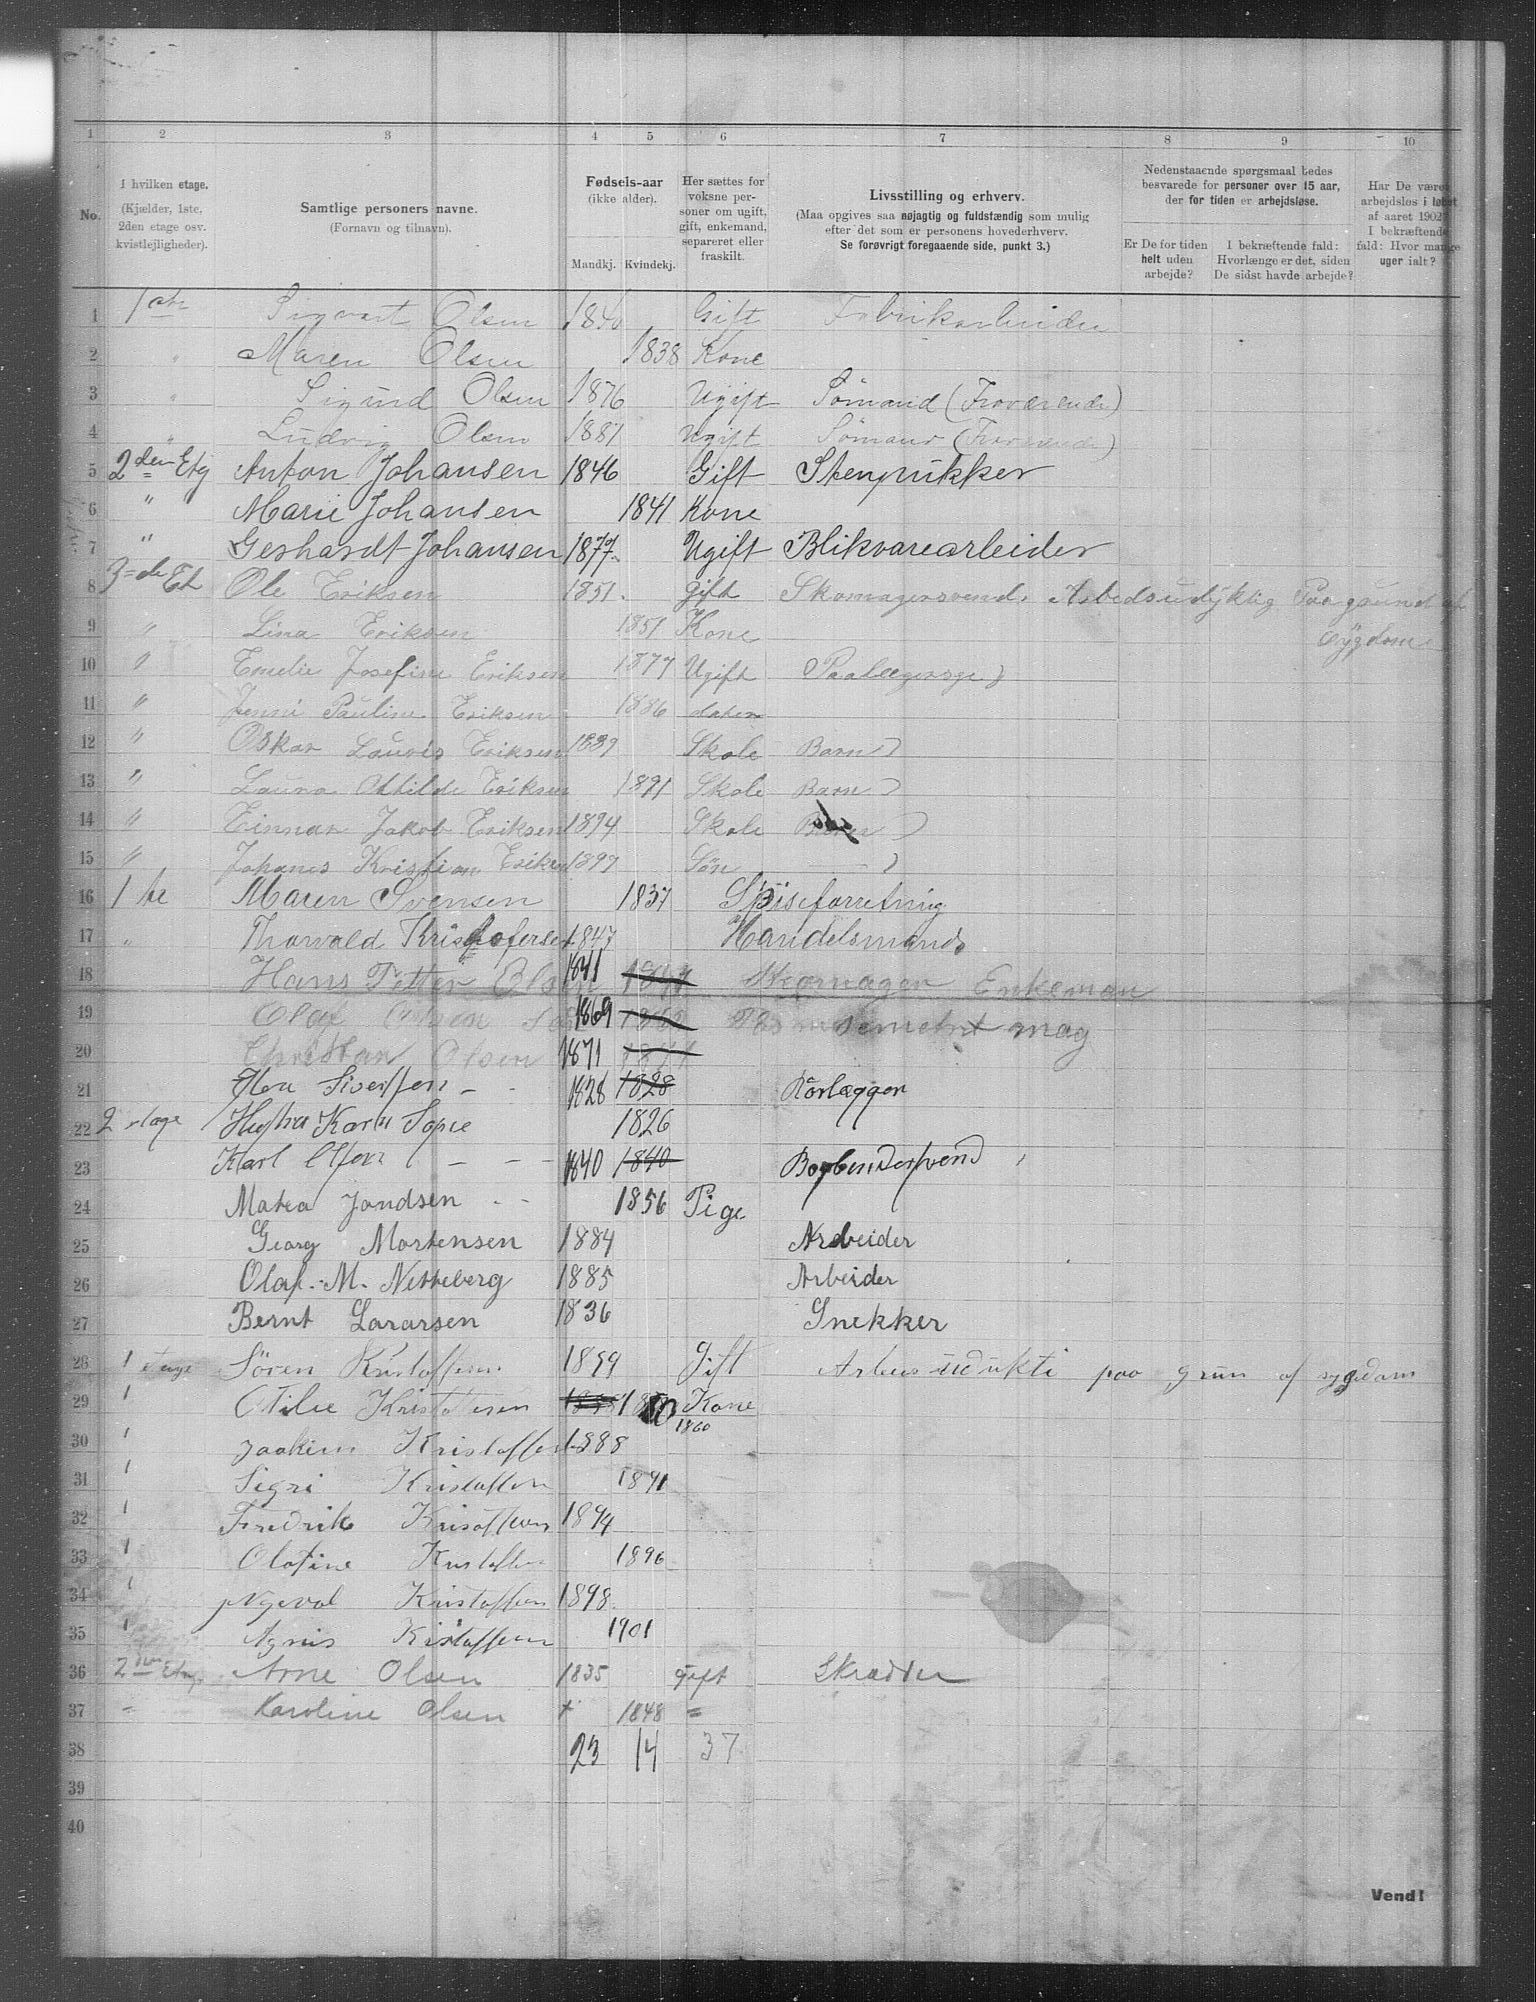 1 2 3 4 5 6 7 8 9 10
No.
I hvilken etage. (Kjælder, 1ste, 2den etage osv. kvistlejligheder).
Samtlige personers navne. (Fornavn og tilnavn).
Fødsels-aar (ikke alder).
Mandkj. Kvindekj.
Her sættes for voksne personer om ugift, gift, enkemand, separeret eller fraskilt.
Livsstilling og erhverv.
(Maa opgives saa nøjagtig og fuldstændig som mulig efter det som er personens hovederhverv.
Se forøvrigt foregaaende side, punkt 3.)
Nedenstaaende spørgsmaal bedes besvarede for personer over 15 aar, der for tiden er arbejdsløse.
Er De for tiden helt uden arbejde?
I bekræftende fald: Hvorlænge er det, siden De sidst havde arbejde?
Har De været arbejdsløs i løbet af aaret 1902? I bekræftende fald: Hvor mange uger ialt?
1 1ste Sigvart Olsen Gift Fabrikarbeider
2 " Maren Olsen 1838 Kone
3 " Sigurd Olsen 1876 Ugift Sømand (Fraværende)
4 " Ludvig Olsen 1887 Ugift Sømand (Fraværende)
5 2den Etg Anton Johansen 1846 Gift
6 " Marie Johansen 1841 Kone
7 " Gerhardt Johansen 1877. Ugift Blikvarearbeider
8 3-de Et Ole Eriksen 1851. gift Skomagersvend. Arbedsudyktig Paa grund af
9 " Lina Eriksen 1851 Kone sygdom
10 " Emelie Josefine Eriksen 1877 Ugift
11 " Jenni Pauline Eriksen 1886 datter
12 " Oskar Lauris Eriksen 1889 Skole Barn)
13 " Laura Eriksen 1891 Skole Barn)
14 " Einnar Jakob Eriksen 1894 Skole )
15 " Johanes Kristian Eriksen 1897 Søn )
16 1 te Maren Svensen 1837 Spiseforretning
17 " Thorvald Kristofersen 1847 Handelsmand
18 Hans Petter Olsen 1841 Skomager Enkeman
19 Olaf Olsen 1869
20 Christian Olsen 1871
21 Siverssen - 1828 1828 Rørlægger
22 2 etage Hustru Karn Sopie 1826
23 Karl - - - 1840 1840
24 Matea Jondsen - - 1856 Pige
25 Georg Mortensen 1884 Arbeider
26 Olaf. M. Netteberg 1885 Arbeider
27 Bernt Lararsen 1836 Snekker
28 1 etage Søren Kristoffersen 1859 Gift paa grun af sygdom
29 1 Otilie Kristoffersen Kone 1860
30 1 Joakim Kristoffersen 1888
31 1 Sigri Kristoffersen 1891
32 1 Fredrik Kristoffersen 1894
33 1 Olafine Kristoffersen 1896
34 1 Kristoffersen 1898.
35 1 Agnis Kristoffersen 1901
36 2den Etg. Arne Olsen 1835 gift Skrædder
37 " Karoline Olsen + 1848 "
38 23 14 37
39
40
Vend!